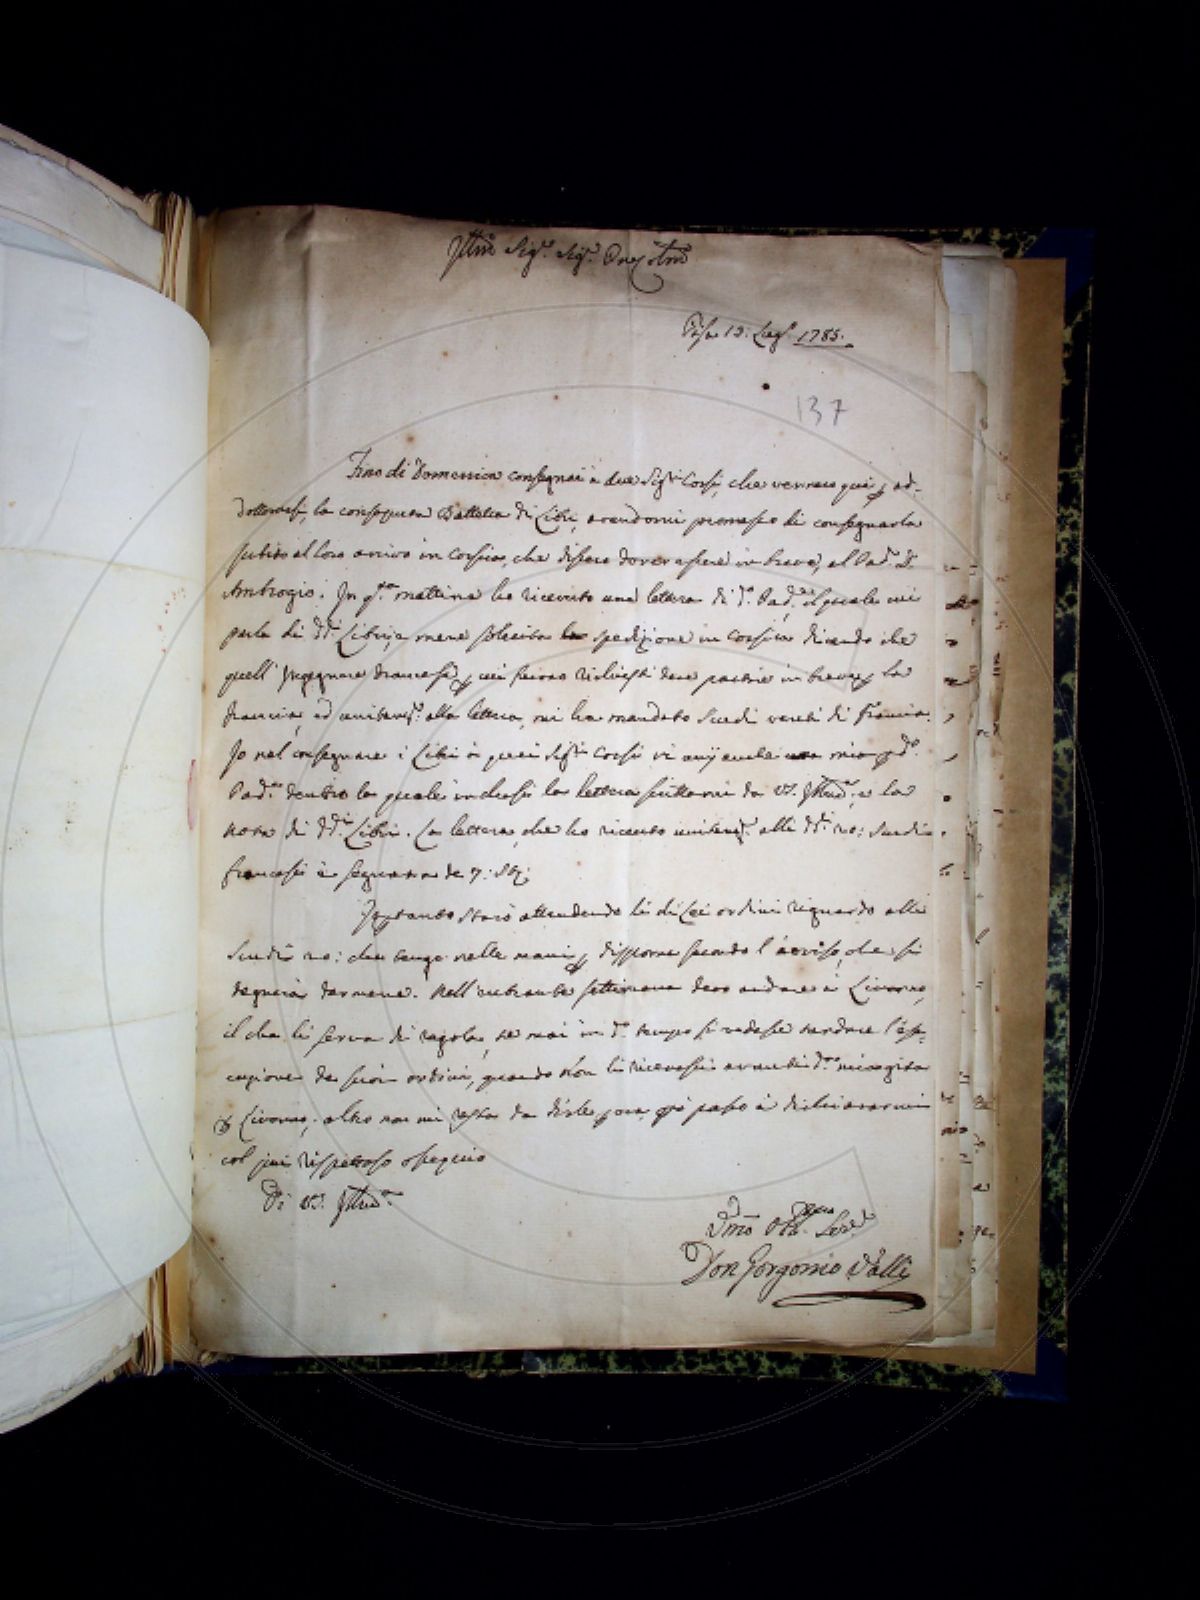 Illmo Sigr. Sigr. Pne Colmo
Pisa 13: Lugo. 1785.
137
Fino di Domenica consegnai a due Sigri Corsi, che vennero qui p ad-
dottorarsi, la consaputa Balletta di Libri, avendomi promesso di consegnarla
subito al loro arrivo in Corsica, che dissero dover essere in breve, al Pad. D.
Ambrogio. In qta. mattina ho ricevuto una lettera di do. Padre, il quale mi
parla di di. Libri, e mene sollecita la spedizione in Corsica dicendo che
quell' Ingegnere Francese, p cui furono richiesti deve partire in breve p la
Francia, ed unitame. alla lettera, mi ha mandato Scudi venti di Francia.
Io nel consegnare i Libri a quei Sigri Corsi vi unij anche una mia p do.
Pade. dentro la quale inclusi la lettera scrittami da VS. Illma. e la
nota di di. Libri. La lettera, che ho ricevuto unitame. alli di. 20: Scudi
francesi è segnata de 7: Stte:
Ipertanto starò attendendo li di Lei ordini riguardo alli
Scudi 20: che tengo nelle mani p disporne secondo l'avviso, che si
degnerà darmene. Nell'entrante settimana devo andare à Livorno,
il che li serva di regola, se mai in do. tempo si vedesse tardare l'ese-
cuzione de suoi ordini, quando non li ricevessi avanti da. mia gita
p Livorno; altro non mi resta da dirle p ora, e passo à dichiararmi
col più rispettoso ossequio
Di VS. Illma.
Dmo Obbmo. Serre.
Don Gorgonio Valli